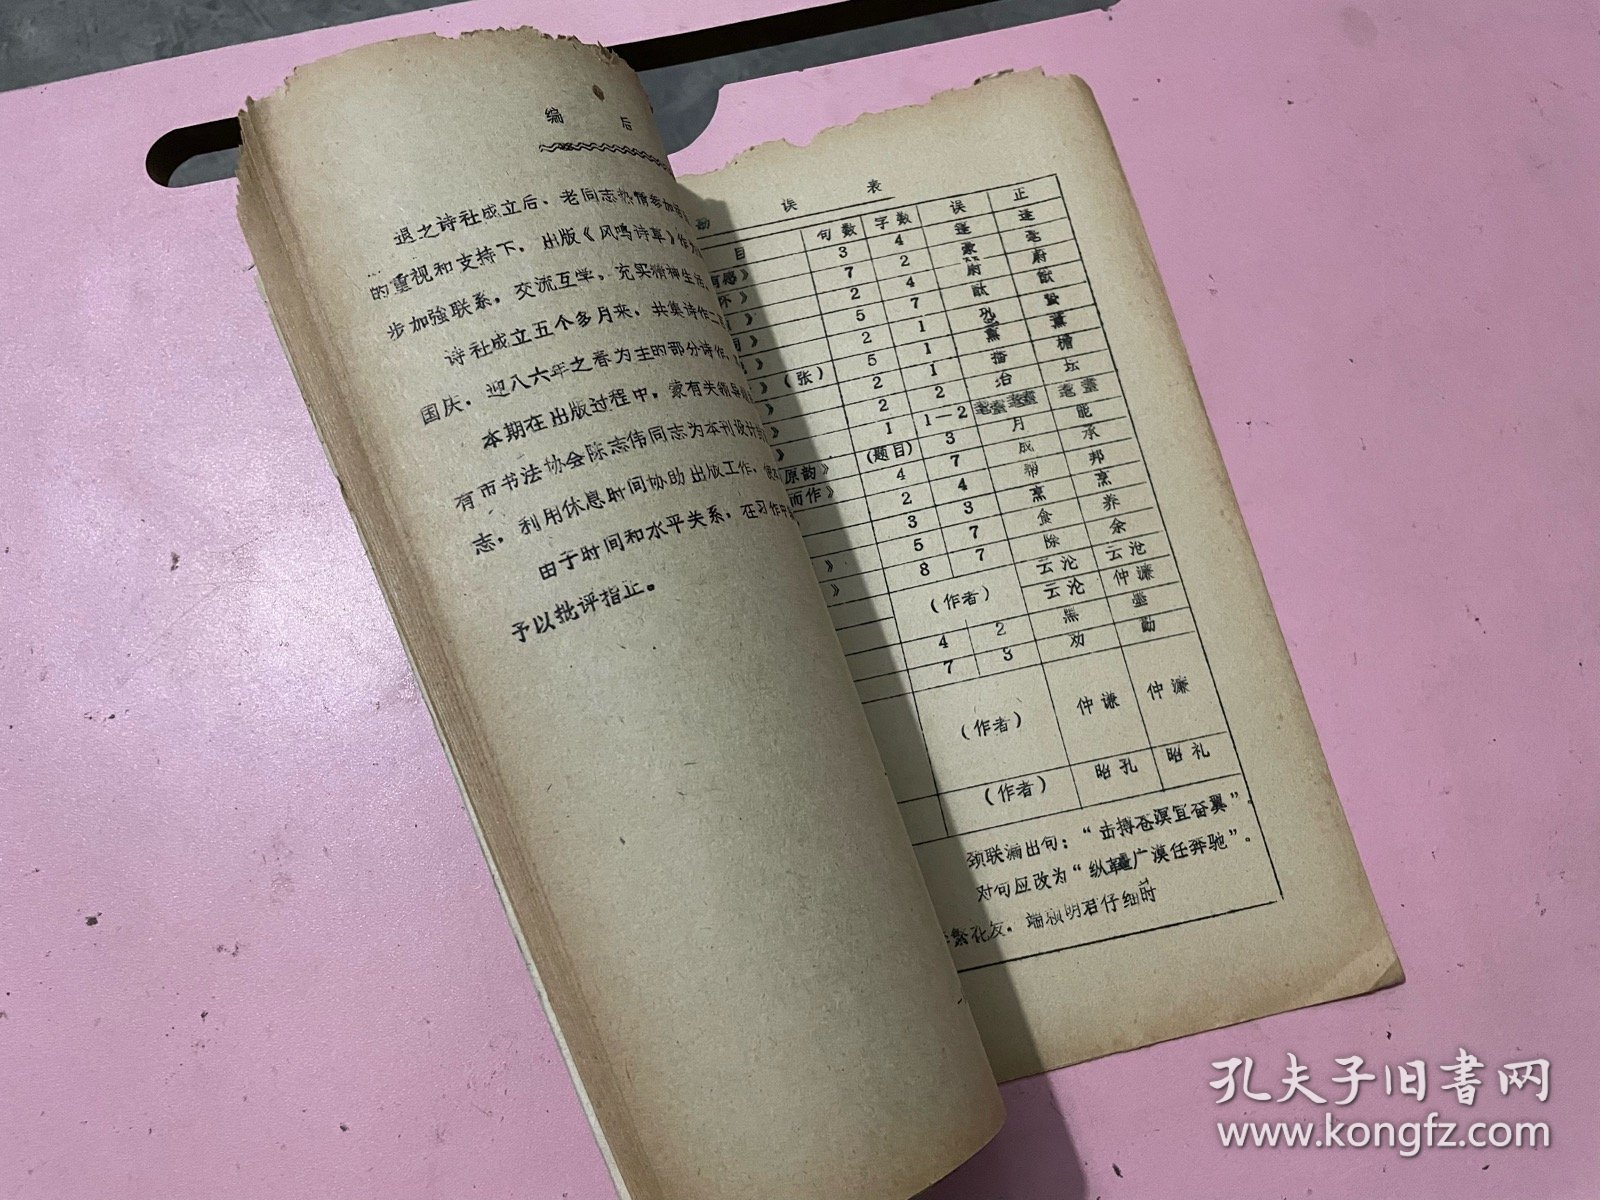 编 后
退之诗社成立后、老同志热情参加
的重视和支持下，出版《凤鸣诗草》作为
步加強联系，交流互学，充实精神生活，
诗社成立五个多月来，共集诗作二
国庆，迎八六年之春为主的部分诗作，
本期在出版过程中，蒙有关领导
有市书法协会陈志伟同志为本刊设计
志，利用休息时间协助出版工作，
由于时间和水平关系，在习作中
予以批评指正。
误 表
目 句数 字数 误 正
有感》 3 4 逢
怀》 7 2 毫
》 2 4 府
》 5 7 猷
》 2 1
》(张) 5 1 熏 薰
》 2 1 播 槽
》 2 2 冶 坛
》 1 1—2
原韵》 (题目) 3 月 能
而作》 4 7 成 承
2 4 邦
3 3 烹 烹
》 5 7 食 养
》 8 7 除 余
(作者) 云沦 云沧
云沦 仲濂
4 2 黑 墨
7 3 劝 勋
(作者) 仲谦 仲濂
(作者) 昭孔 昭礼
颈联漏出句：“击搏苍溟宜奋翼”．
对句应改为“纵  广漠任奔驰”。
繁花发．端赖明君仔细时
孔夫子旧書网
www.kongfz.com